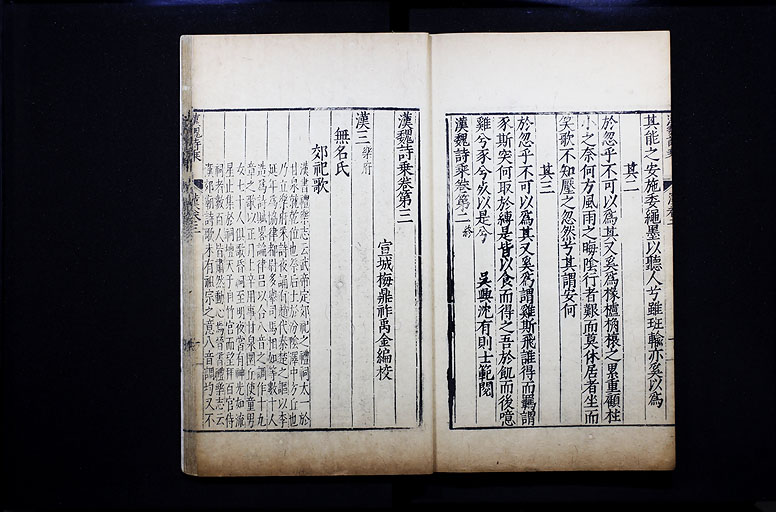 其能之安施委繩墨以聽人兮雖班輸亦奚以為
其二
於忽乎不可以為其又奚為椽櫨桷榱之累重顧柱
小之奈何方風雨之晦陰行者艱而莫休居者坐而
笑歌不知壓之忽然兮其謂安何
其三
於忽乎不可以為其又奚為謂雞斯飛誰得而羈謂
豕斯突何取於縛是皆以食而得之吾於飢而後噫
雞兮豕兮死以是兮
吳興沈有則士範閱
漢魏詩乘卷第二終
漢魏詩乘卷第三
宣城梅鼎祚禹金編校
漢三 樂府
無名氏
郊祀歌
漢書禮樂志云武帝定郊祀之禮祠太一於
甘泉就乾位也祭后土於汾陰澤中方丘也
乃立樂府采詩夜誦有趙代秦楚之謳以李
延年為協律都尉多舉司馬相如等數十人
造為詩賦畧論律呂以合八音之調作十九
章之歌以正月上辛用事甘泉圜丘使童男
女七十人俱歌昏祠至明夜常有神光如流
星止集於祠壇天子自竹宮而望拜百官侍
祠者數百人皆肅然動心焉晉書禮樂志云
漢郊廟詩歌未有祖宗之意八音調均又不